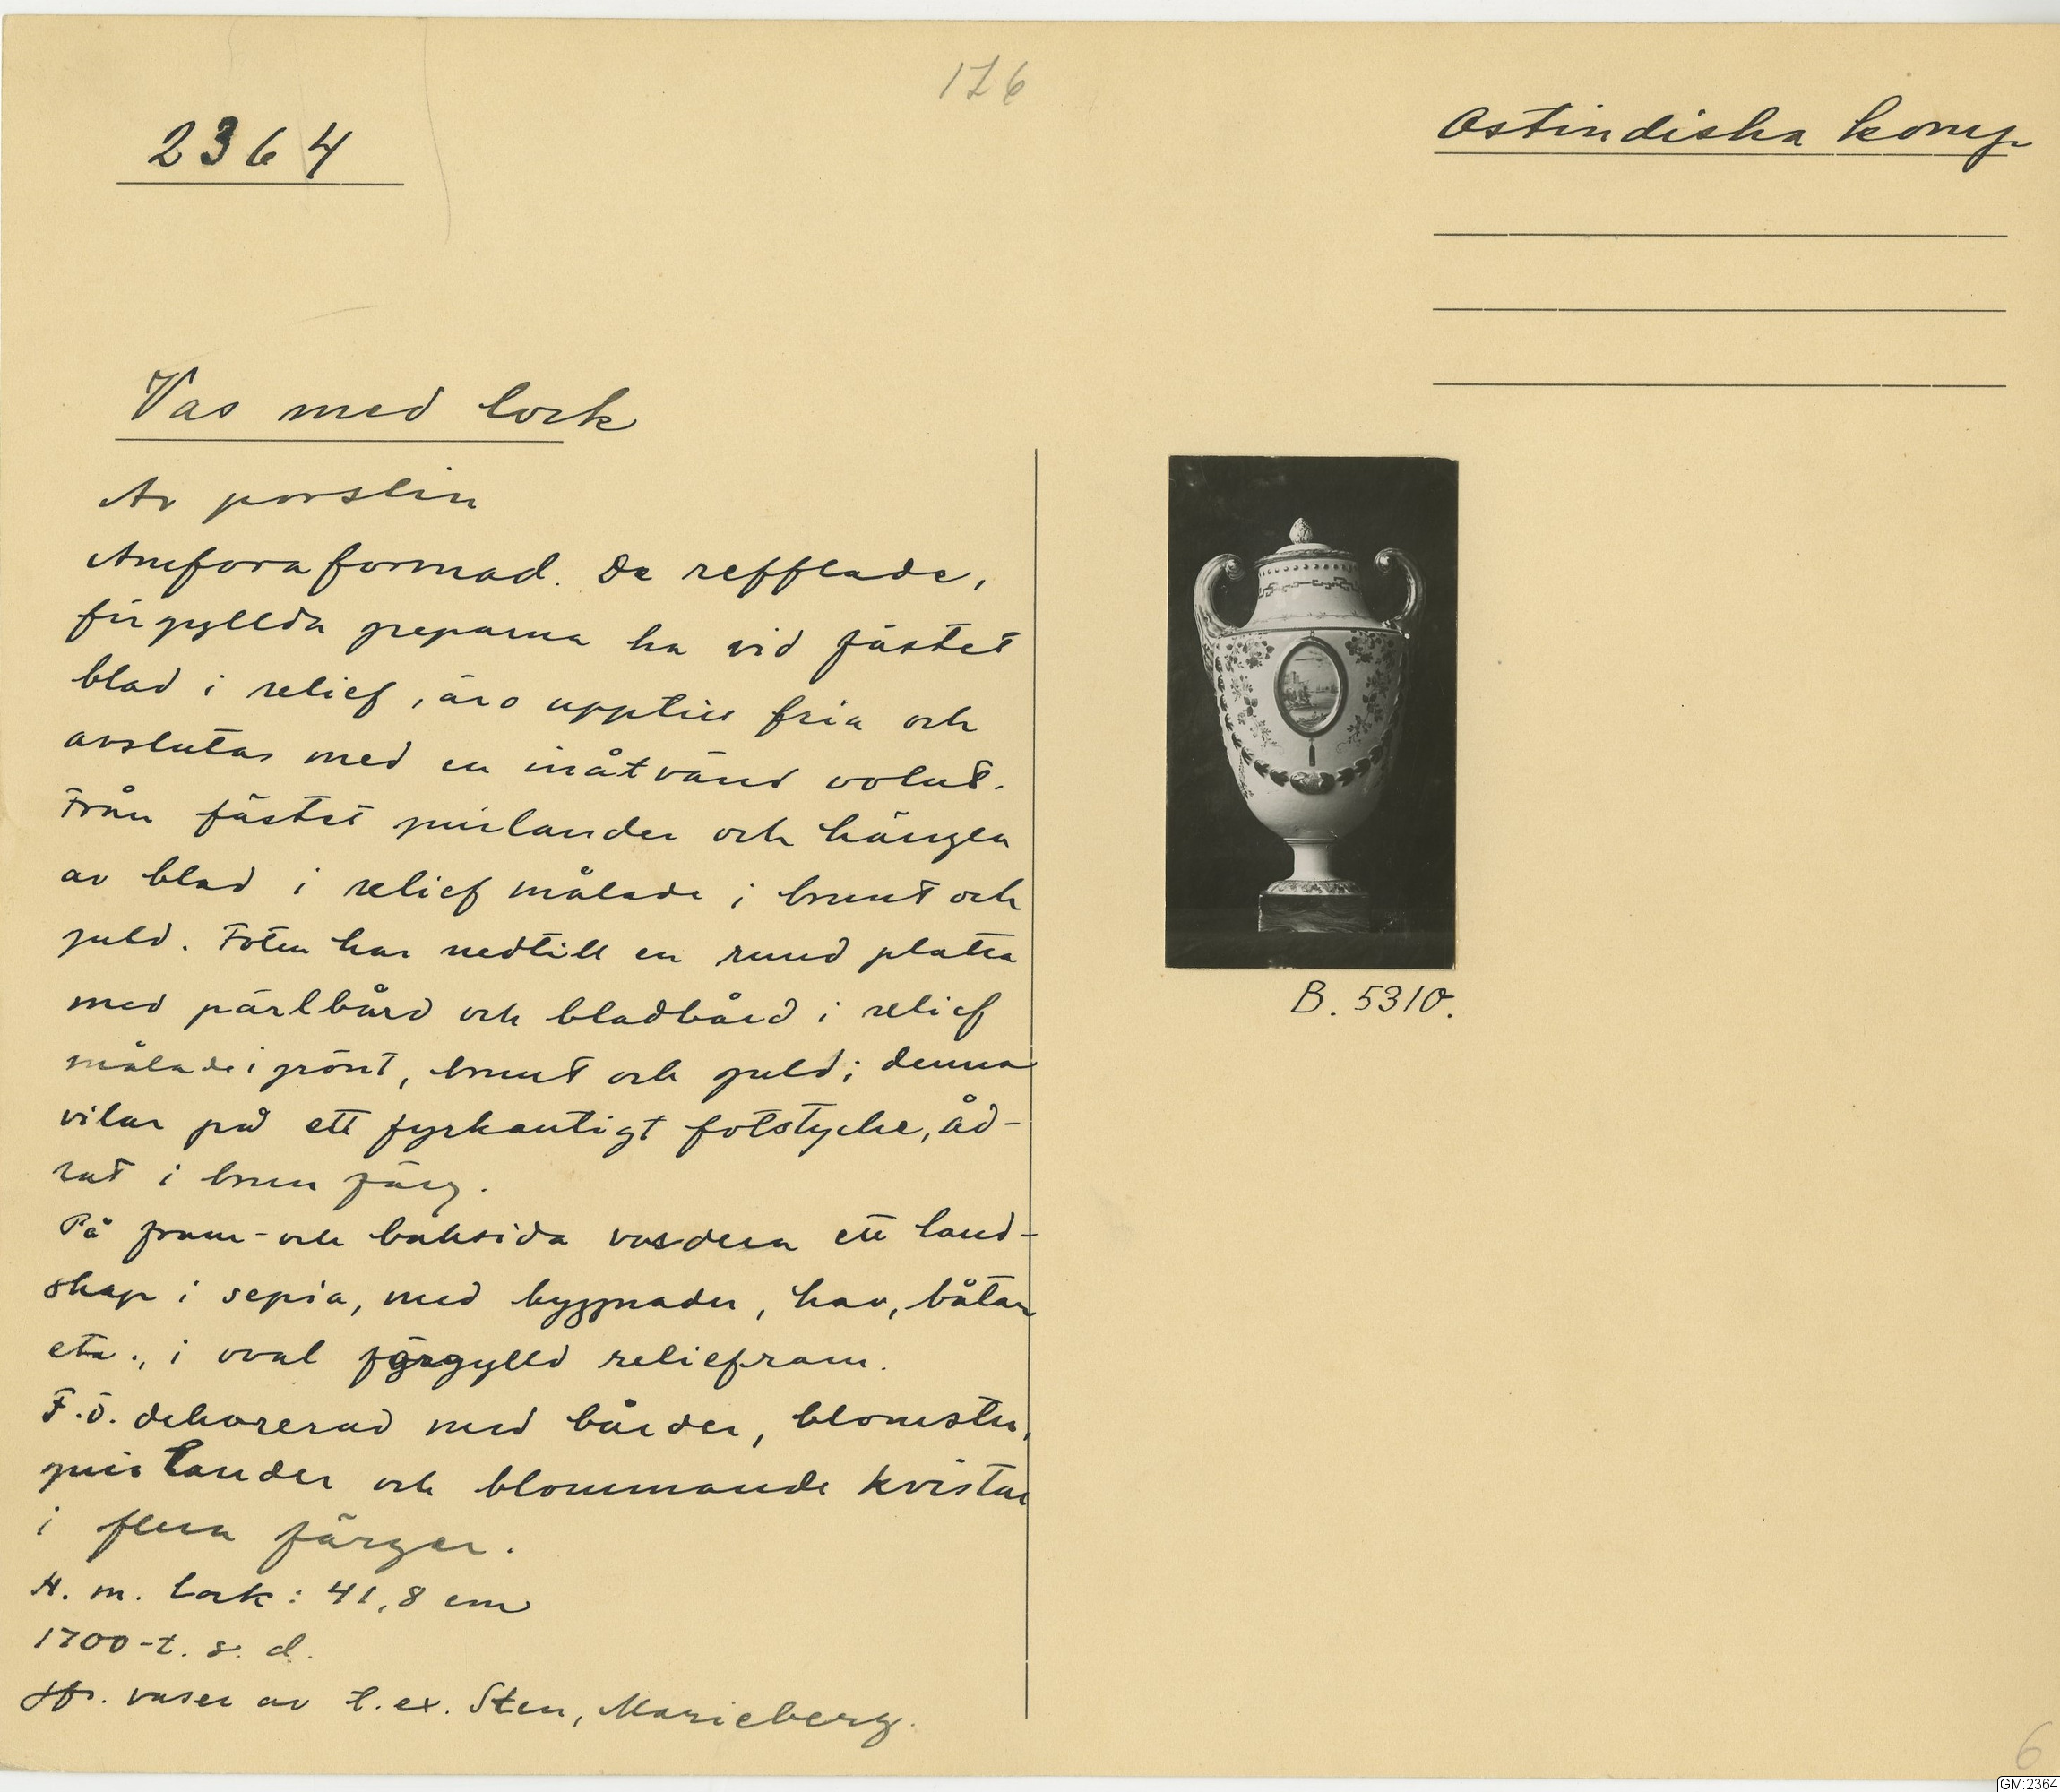 176
2364
Ostindiska komp.
Vas med lock
Av porslin
Amforaformad. De refflade,
förgyllda greparna ha vid fästet
blad i relief, äro upptill fria och
avslutas med en inåtvänd volut.
Från fästet girlander och hängen
av blad i relief målade i brunt och
guld. Foten har nedtill en rund platta
med pärlbård och bladbård i relief
målade i grönt, brunt och guld; denna
vilar på ett fyrkantigt fotstycke, åd-
rat i brun färg.
På fram- och baksida vardera ett land-
skap i sepia, med byggnader, hav, båtar
etc., i oval förgylld reliefram.
F.ö. dekorerad med bårder, blomster,
girlander och blommande kvistar
i flera färger.
H. m. lock: 41,8 cm
1700-t. s. d.
Jfr. vaser av t. ex. Sten, Marieberg.
B. 5310.
6
GM:2364